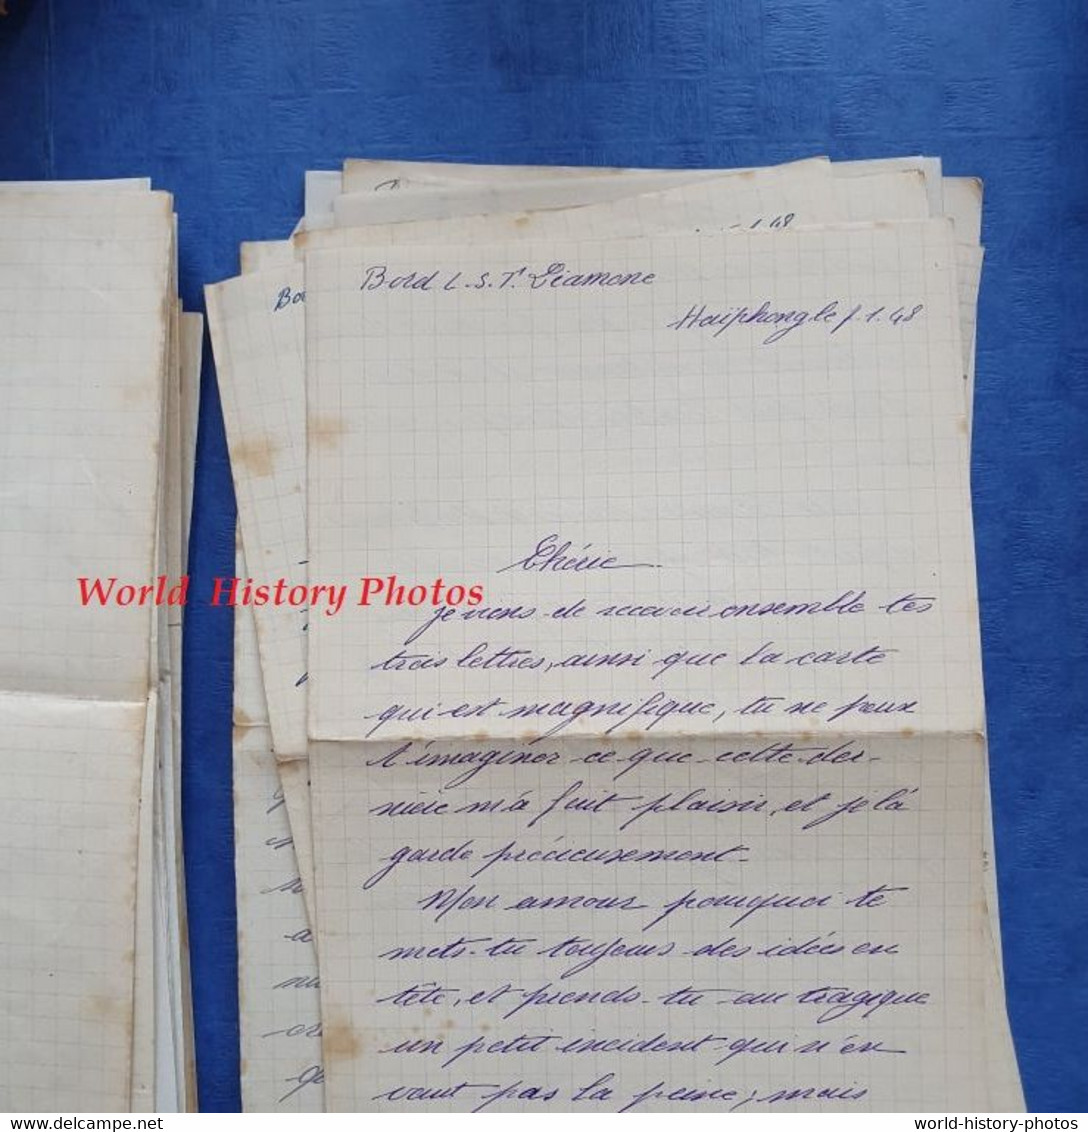 Bord L.S.T. Diamone
Haïphong le 7.1.48
Chérie
je viens de recevoir ensemble tes
trois lettres, ainsi que la carte
qui est magnifique, tu ne peux
t'imaginer ce que cette der-
nière m'a fait plaisir, et je la
garde précieusement.
Mon amour pourquoi te
mets-tu toujours des idées en
tête, et prends-tu au tragique
un petit incident qui n'en
vaut pas la peine; mais
1.48
World History Photos
world-history-photos